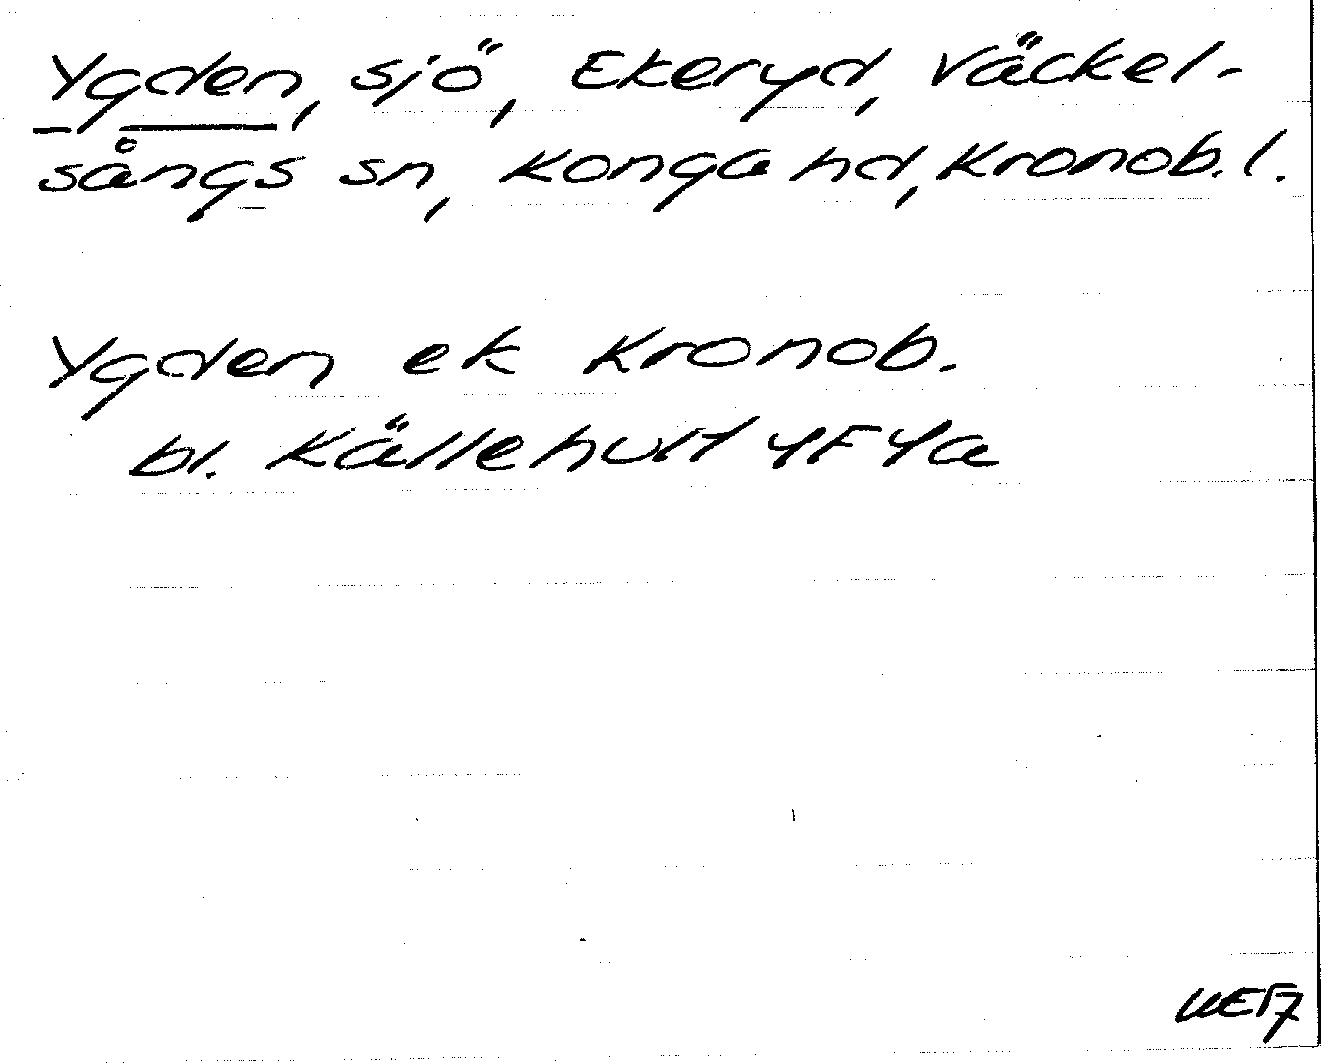 Ygden, sjö, Ekeryd, Väckel-
sångs sn, Konga hd, Kronob. l.
Ygden ek Kronob.
bl. Källehult 4F 4a